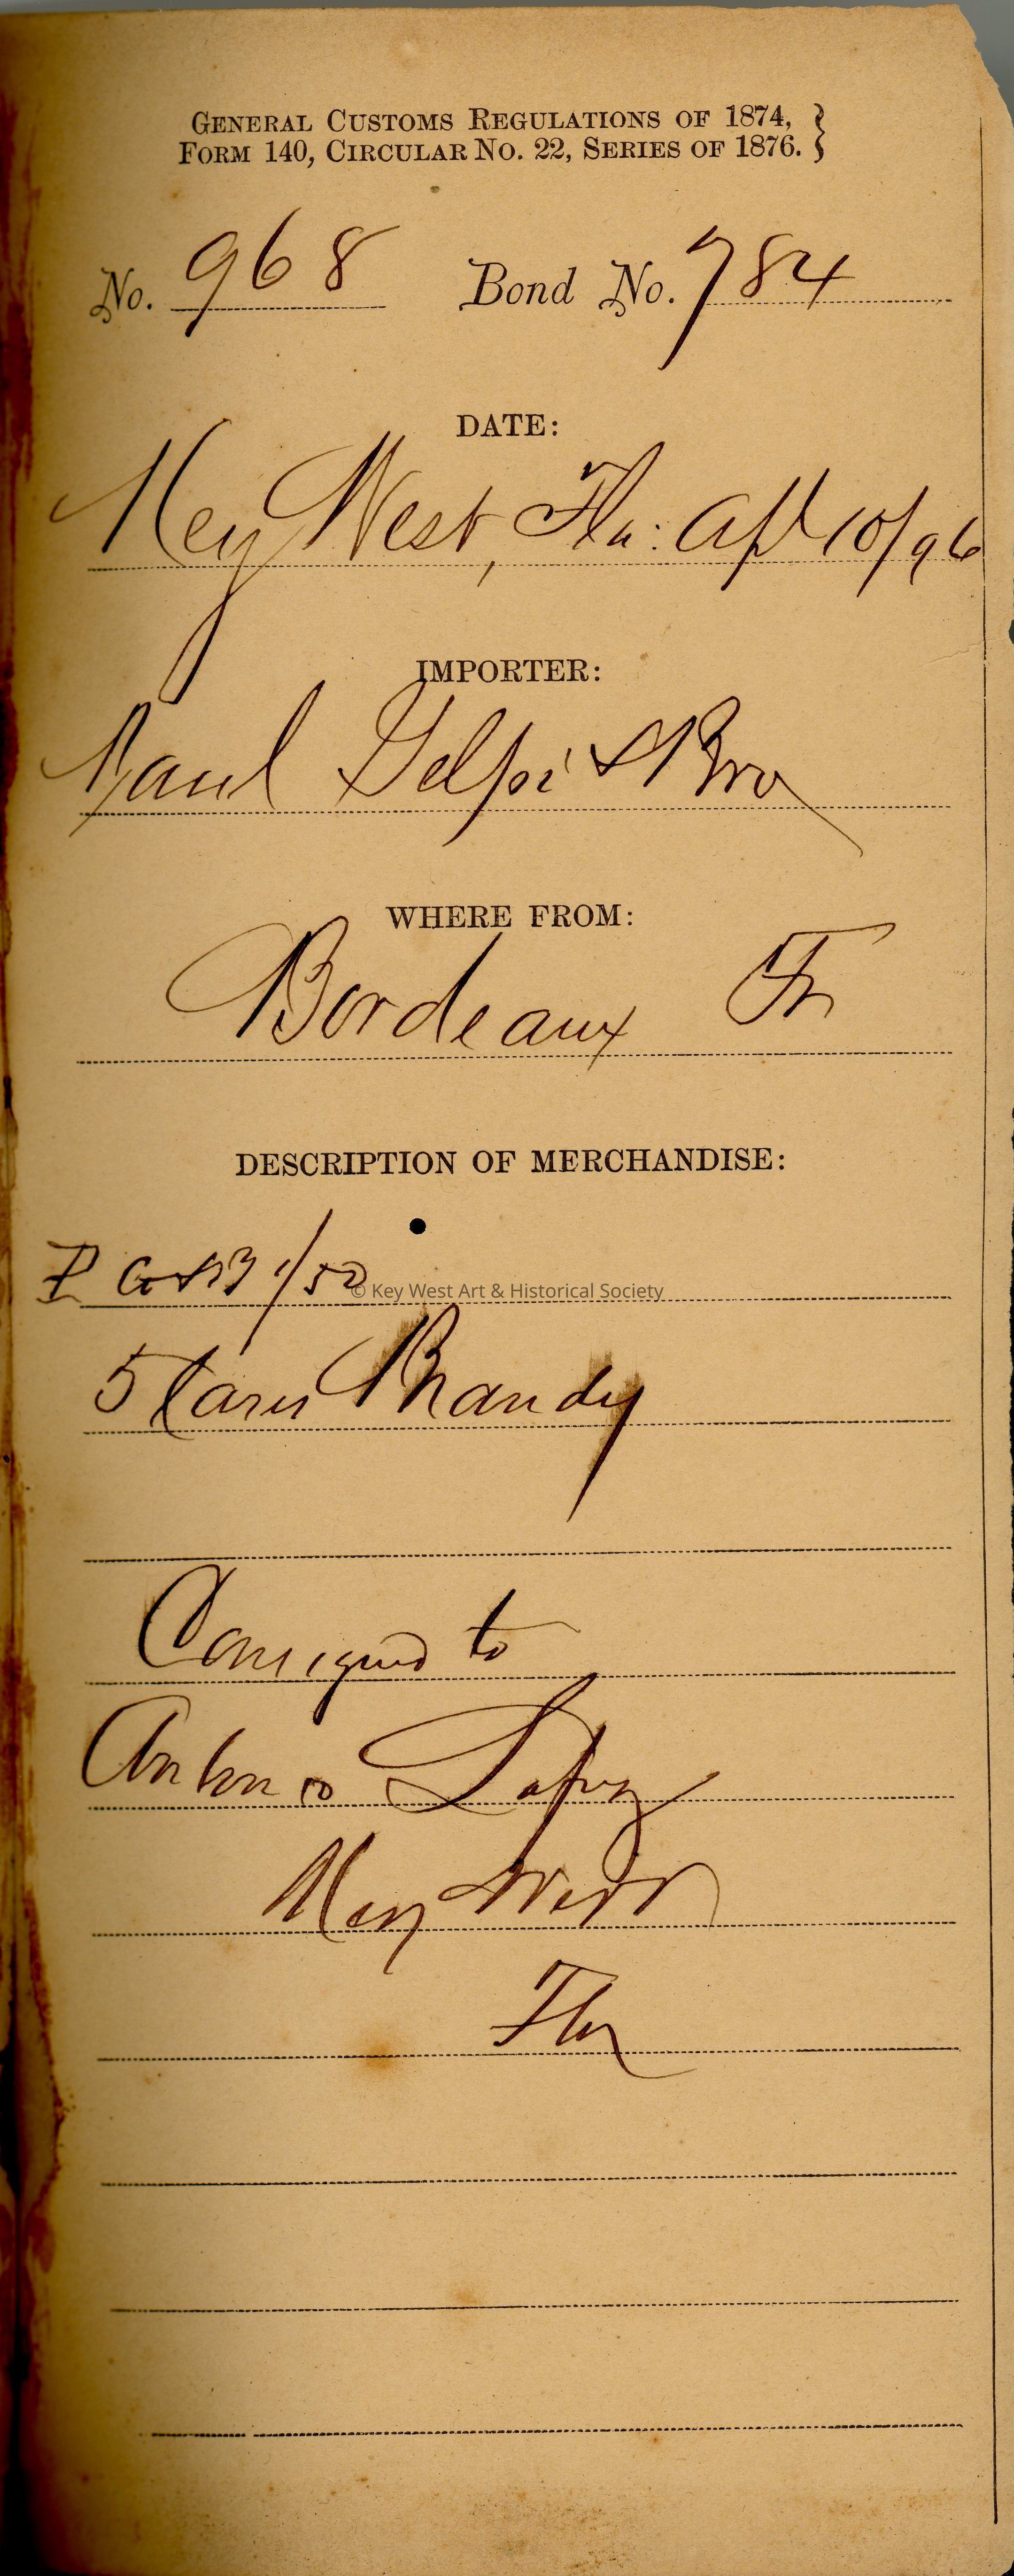 GENERAL CUSTOMS REGULATIONS OF 1874, }
FORM 140, CIRCULAR NO. 22, SERIES OF 1876. }
No. 968 Bond No. 784
DATE:
Key West, Fla: Apl 10/96
IMPORTER:
Paul Gelpi & Bro
WHERE FROM:
Bordeaux Fr
DESCRIPTION OF MERCHANDISE:
1/50
© Key West Art & Historical Society
5 Cases Brandy
Consigned to
Antonio Lopez
Key West
Fla